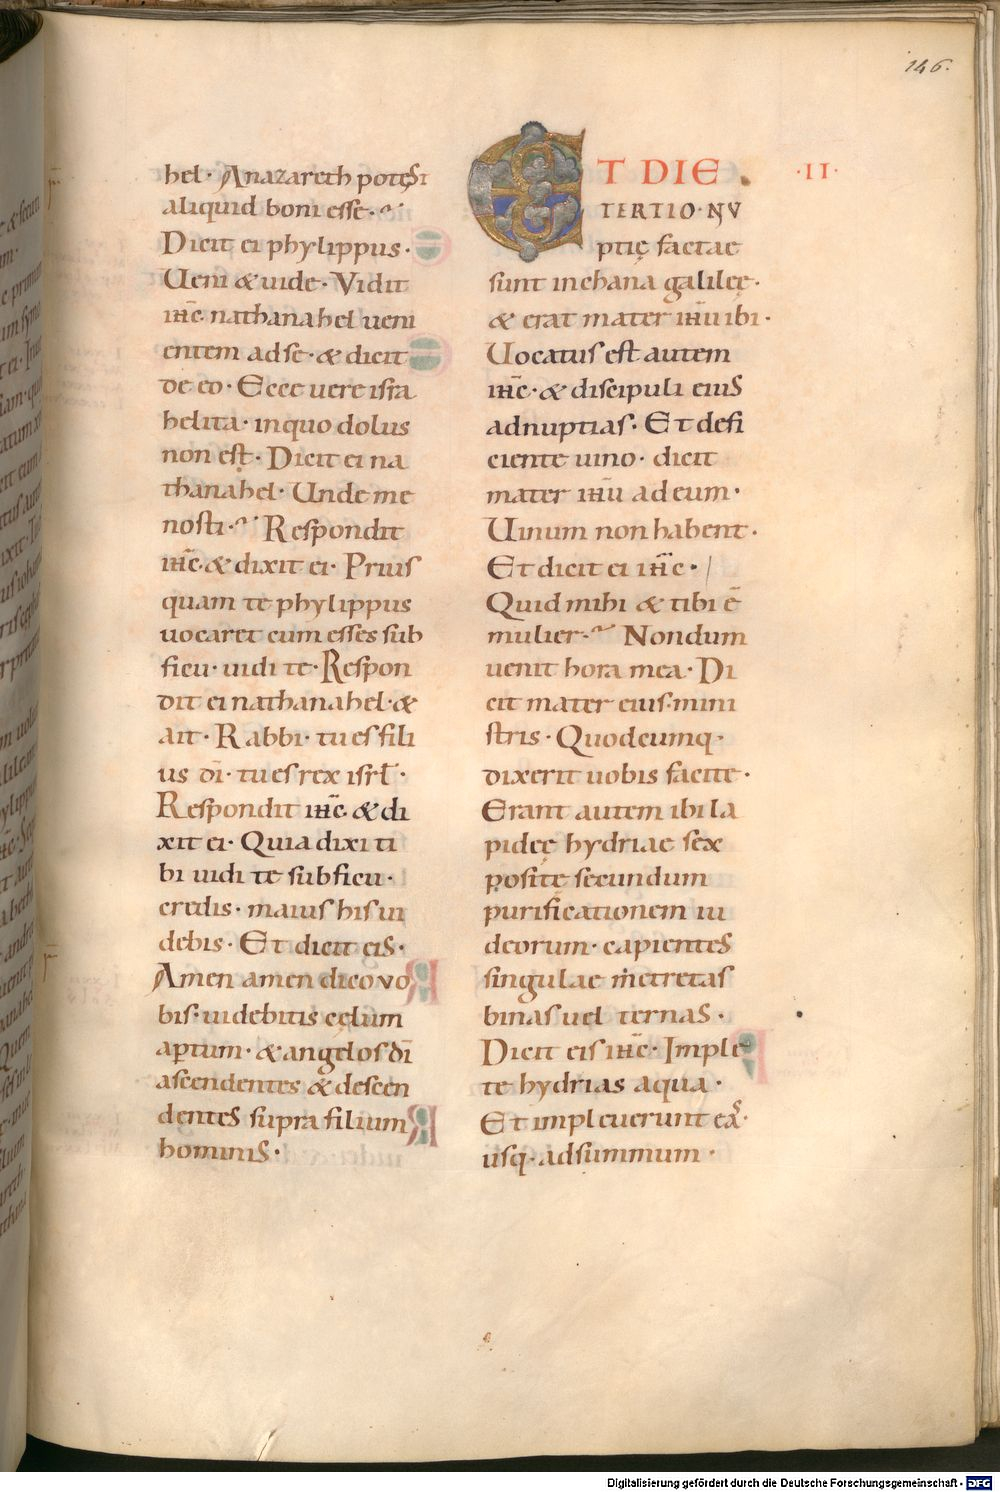 146.
hel· A nazareth potest
aliquid boni esse·
Dicit ei phylippus·
Ueni & uide· Vidit
ihc nathanahel ueni
entem ad se· & dicit
de eo· Ecce uere isra
helita· in quo dolus
non est· Dicit ei na
thanahel· Unde me
nosti· Respondit
ihc· & dixit ei· Prius
quam te phylippus
uocaret cum esses sub
ficu· uidi te· Respon
dit ei nathanahel· &
ait· Rabbi· tu es fili
us dī· tu es rex isrł·
Respondit ihc· & di
xit ei· Quia dixi ti
bi uidi te sub ficu·
credis· maius his ui
debis· Et dicit eis·
Amen amen dico vo
bis· uidebitis cęlum
apertum· & angelos dī
ascendentes & descen
dentes supra filium
hominis·
ET DIE ·II·
TERTIO· NV
ptię factae
sunt in chana galileę·
& erat mater ihu ibi·
Uocatus est autem
ihc· & discipuli eius
ad nuptias· Et defi
ciente uino· dicit
mater ihu ad eum·
Uinum non habent·
Et dicit ei ihc·
Quid mihi & tibi ē
mulier· Nondum
uenit hora mea· Di
cit mater eius· mini
stris· Quodcumq·
dixerit uobis facite·
Erant autem ibi la
pideę hydriae sex
positę secundum
purificationem iu
deorum· capientes
singulae metretas
binas uel ternas·
Dicit eis ihc· Imple
te hydrias aqua·
Et impleuerunt eas·
usq· ad summum·
Digitalisierung gefördert durch die Deutsche Forschungsgemeinschaft - DFG